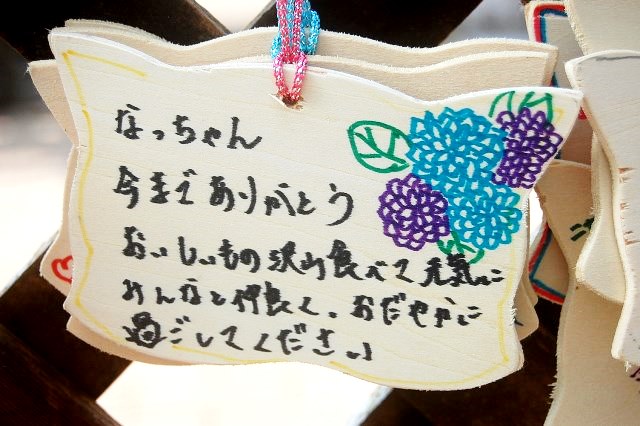 なっちゃん
今まで ありがとう
おいしいもの沢山食べて元気に
みんなと仲良く、おだやかに
過ごしてください